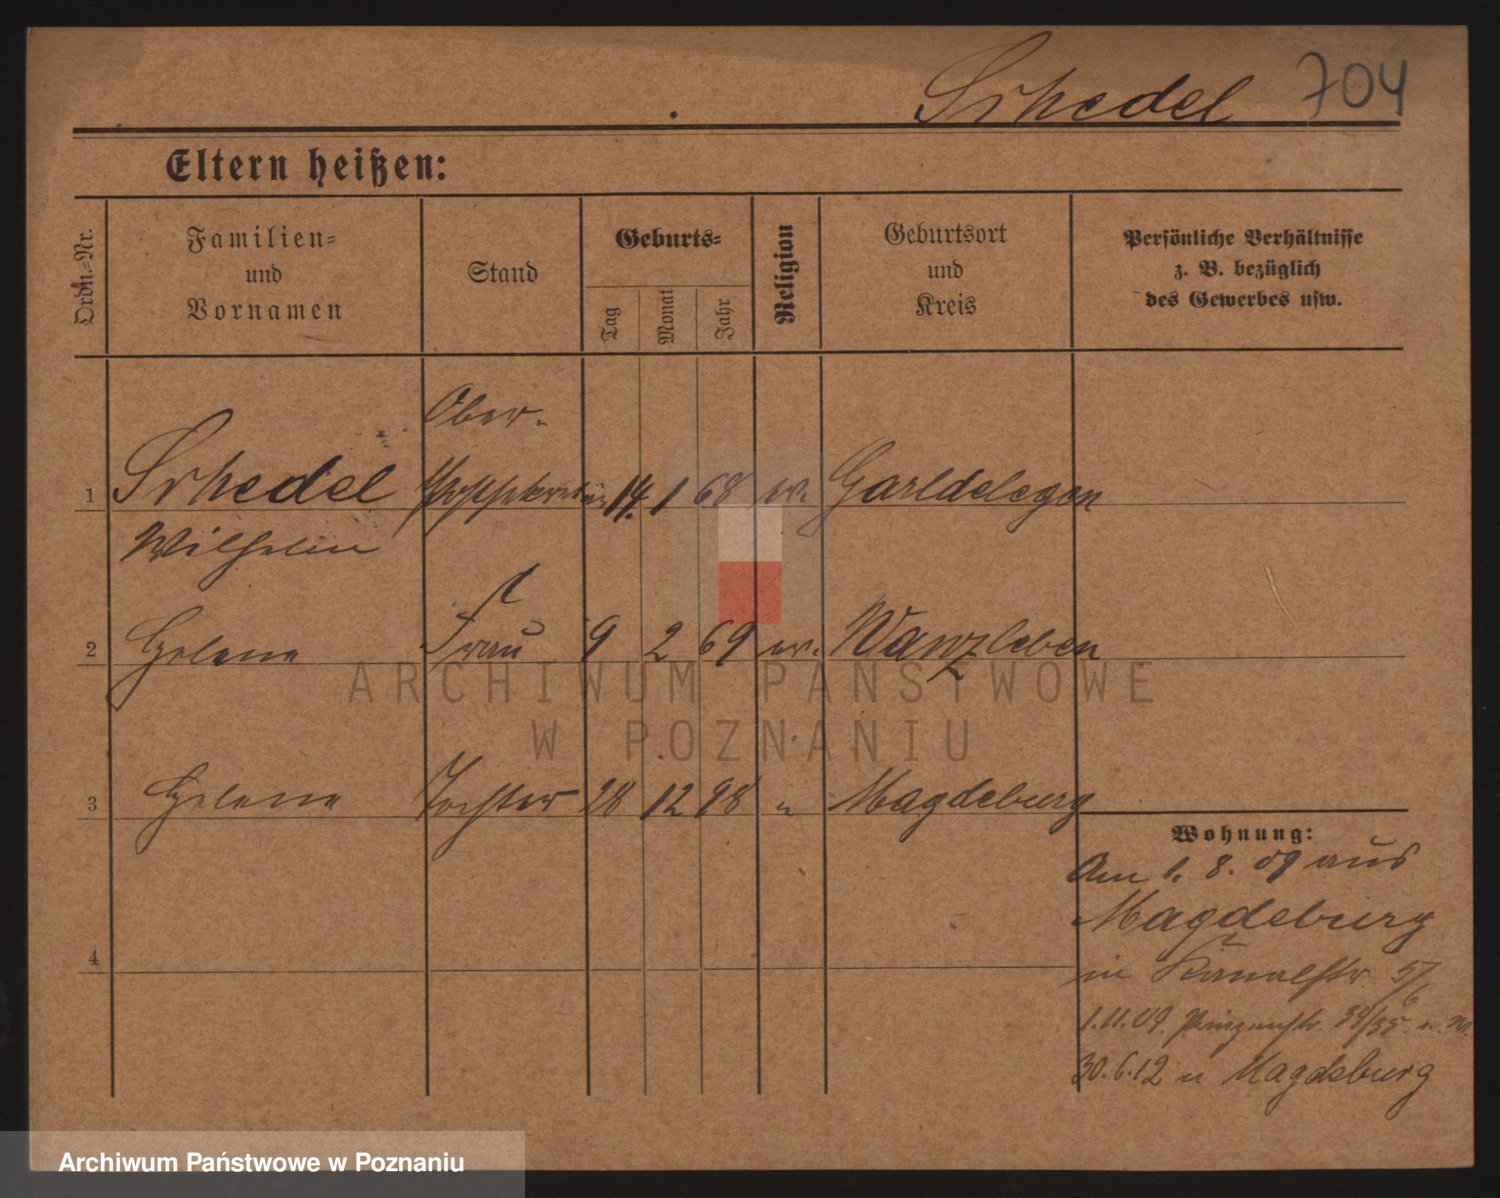 Schedel 704
Eltern heißen:
Ordn.-Nr.
Familien-
und
Vornamen
Stand
Geburts-
Tag
Monat
Jahr
Religion
Geburtsort
und
Kreis
Persönliche Verhältnisse
z. B. bezüglich
des Gewerbes usw.
Ober-
1 Schedel Postsekretär 14. 1 68 ev. Garldelegen
Wilhelm
2 Helene Frau 9 2 69 ev. Wanzleben
ARCHIWUM PAŃSTWOWE
W POZNANIU
3 Helene Tochter 28 12 98 " Magdeburg
Wohnung:
Am 1. 8. 09 aus
Magdeburg
4
in Kanalstr. 5/6
1.11.09. Prinzenstr. 34/35
30.6.12 n Magdeburg
Archiwum Państwowe w Poznaniu